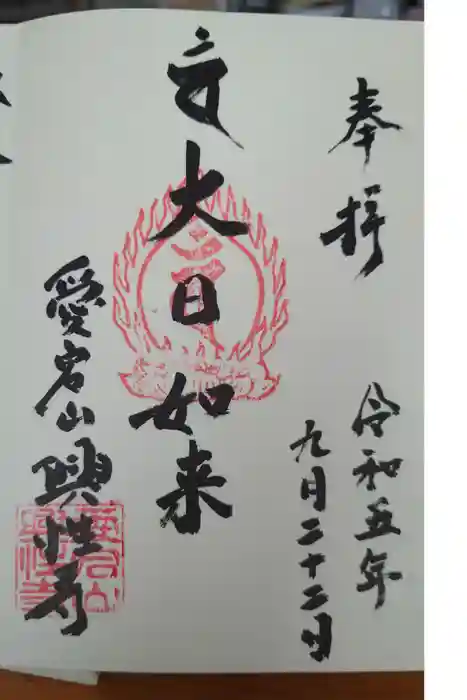 奉拝
令和五年
九月二十二日
大日如来
愛宕山興性寺
愛宕山
興性寺